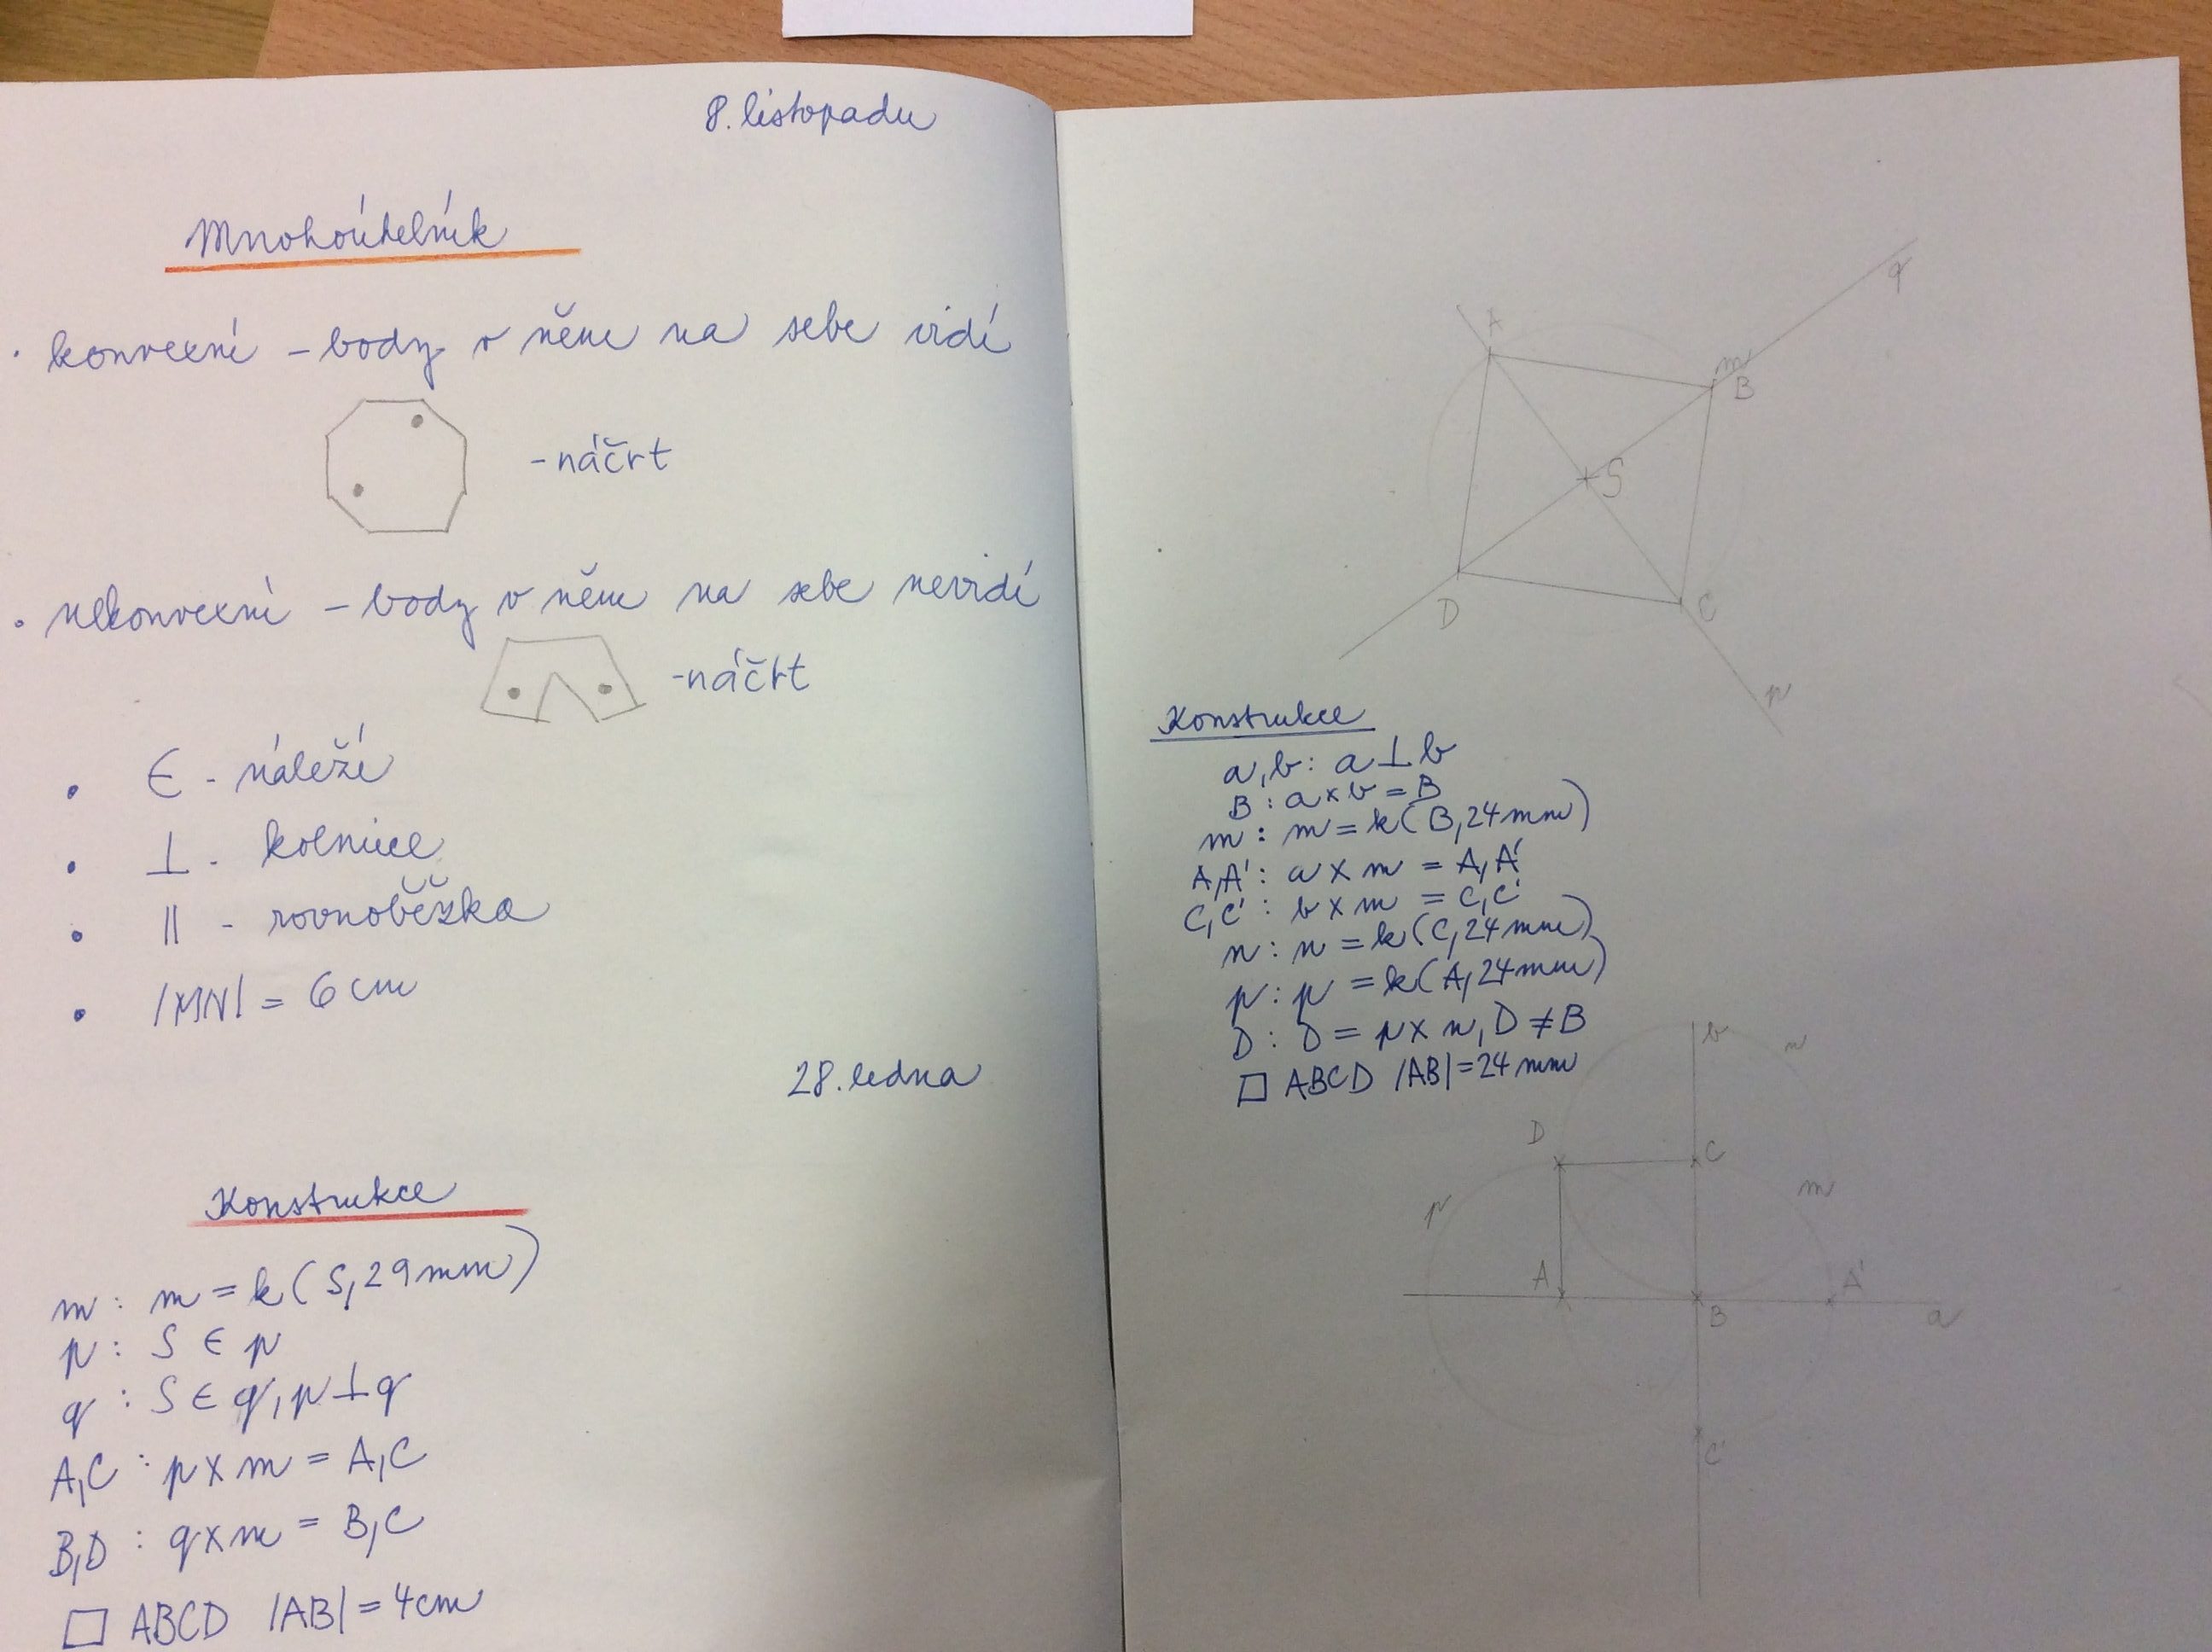 8. listopadu
Mnohoúhelník
· konvexní - body v něm na sebe vidí
- náčrt
· nekonvexní - body v něm na sebe nevidí
- náčrt
· ∈ - náleží
· ⊥ - kolmice
· || - rovnoběžka
· |MN| = 6 cm
28. ledna
Konstrukce
m : m = k (S, 29 mm)
p : S ∈ p
q : S ∈ q, p ⊥ q
A, C : p x m = A, C
B, D : q x m = B, C
□ ABCD |AB| = 4 cm
q
A
m
B
S
D
C
p
Konstrukce
a, b : a ⊥ b
B : a x b = B
m : m = k (B, 24 mm)
A, A' : a x m = A, A'
C, C' : b x m = C, C'
n : n = k (C, 24 mm)
p : p = k (A, 24 mm)
D : D = p x n, D ≠ B
□ ABCD |AB| = 24 mm
b
n
D
C
p
m
A
A'
B
a
C'